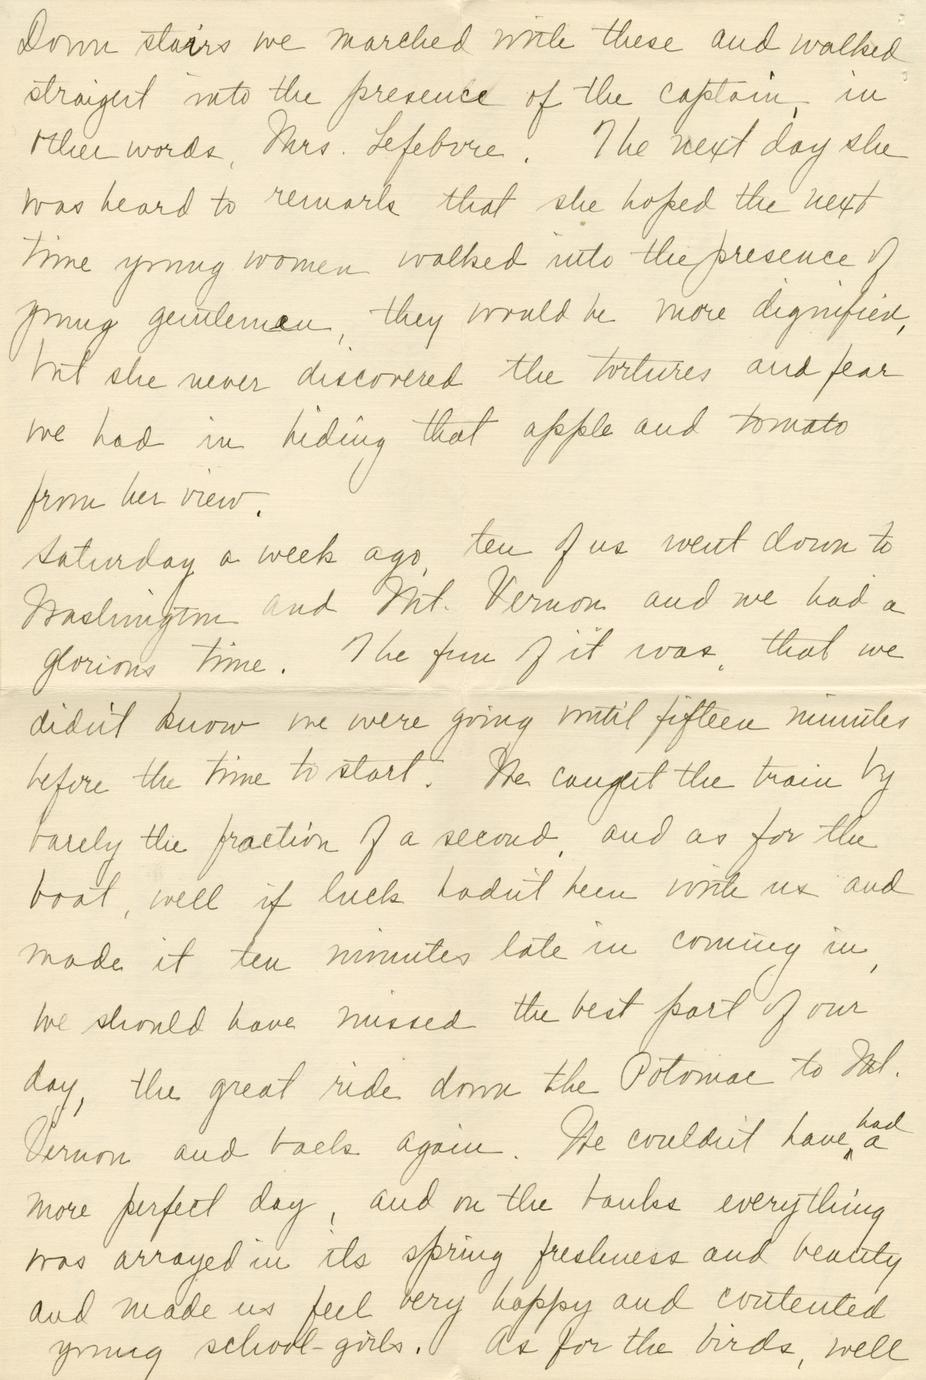 Down stairs we marched with these and walked
straight into the presence of the captain, in
other words, Mrs. Lefebvre. The next day she
was heard to remark that she hoped the next
time young women walked into the presence of
young gentlemen, they would be more dignified,
but she never discovered the tortures and fear
we had in hiding that apple and tomato
from her view.
Saturday a week ago, ten of us went down to
Washington and Mt. Vernon and we had a
glorious time. The fun of it was, that we
didn't know we were going until fifteen minutes
before the time to start. We caught the train by
barely the fraction of a second, and as for the
boat, well if luck hadn't been with us and
made it ten minutes late in coming in,
we should have missed the best part of our
day, the great ride down the Potomac to Mt.
Vernon and back again. We couldn't have had a
more perfect day, and on the banks everything
was arrayed in its spring freshness and beauty
and made us feel very happy and contented
young school-girls. As for the birds, well